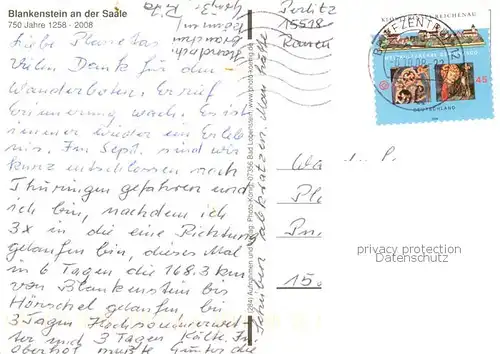 Blankenstein an der Saale
750 Jahre 1258 - 2008
Liebe Planetas
Vielen Dank für den
Wanderboten. Er rief
Erinnerung wach. Es ist
immer wieder ein Erleb
nis. Im Sept. sind wir
kurz entschlossen nach
Thüringen gefahren und
ich bin, nachdem ich
3x in die eine Richtung
gelaufen bin, dieses Mal
in 6 Tagen die 168.3 km
von Blankenstein bis
Hörschel gelaufen, bei
3 Tagen Hochsommerwet
ter und 3 Tagen Kälte. In
Oberhof mußte Günter die
Scheiben abkratzen. Man hätte
(284) Aufnahmen und Verlag: Photo-König, 07356 Bad Lobenstein, www.photo-koenig.de
15518
BRIEFZENTRUM
KLOSTERINSEL REICHENAU
45
DEUTSCHLAND
Wa
Pl
15
privacy protection
Datenschutz